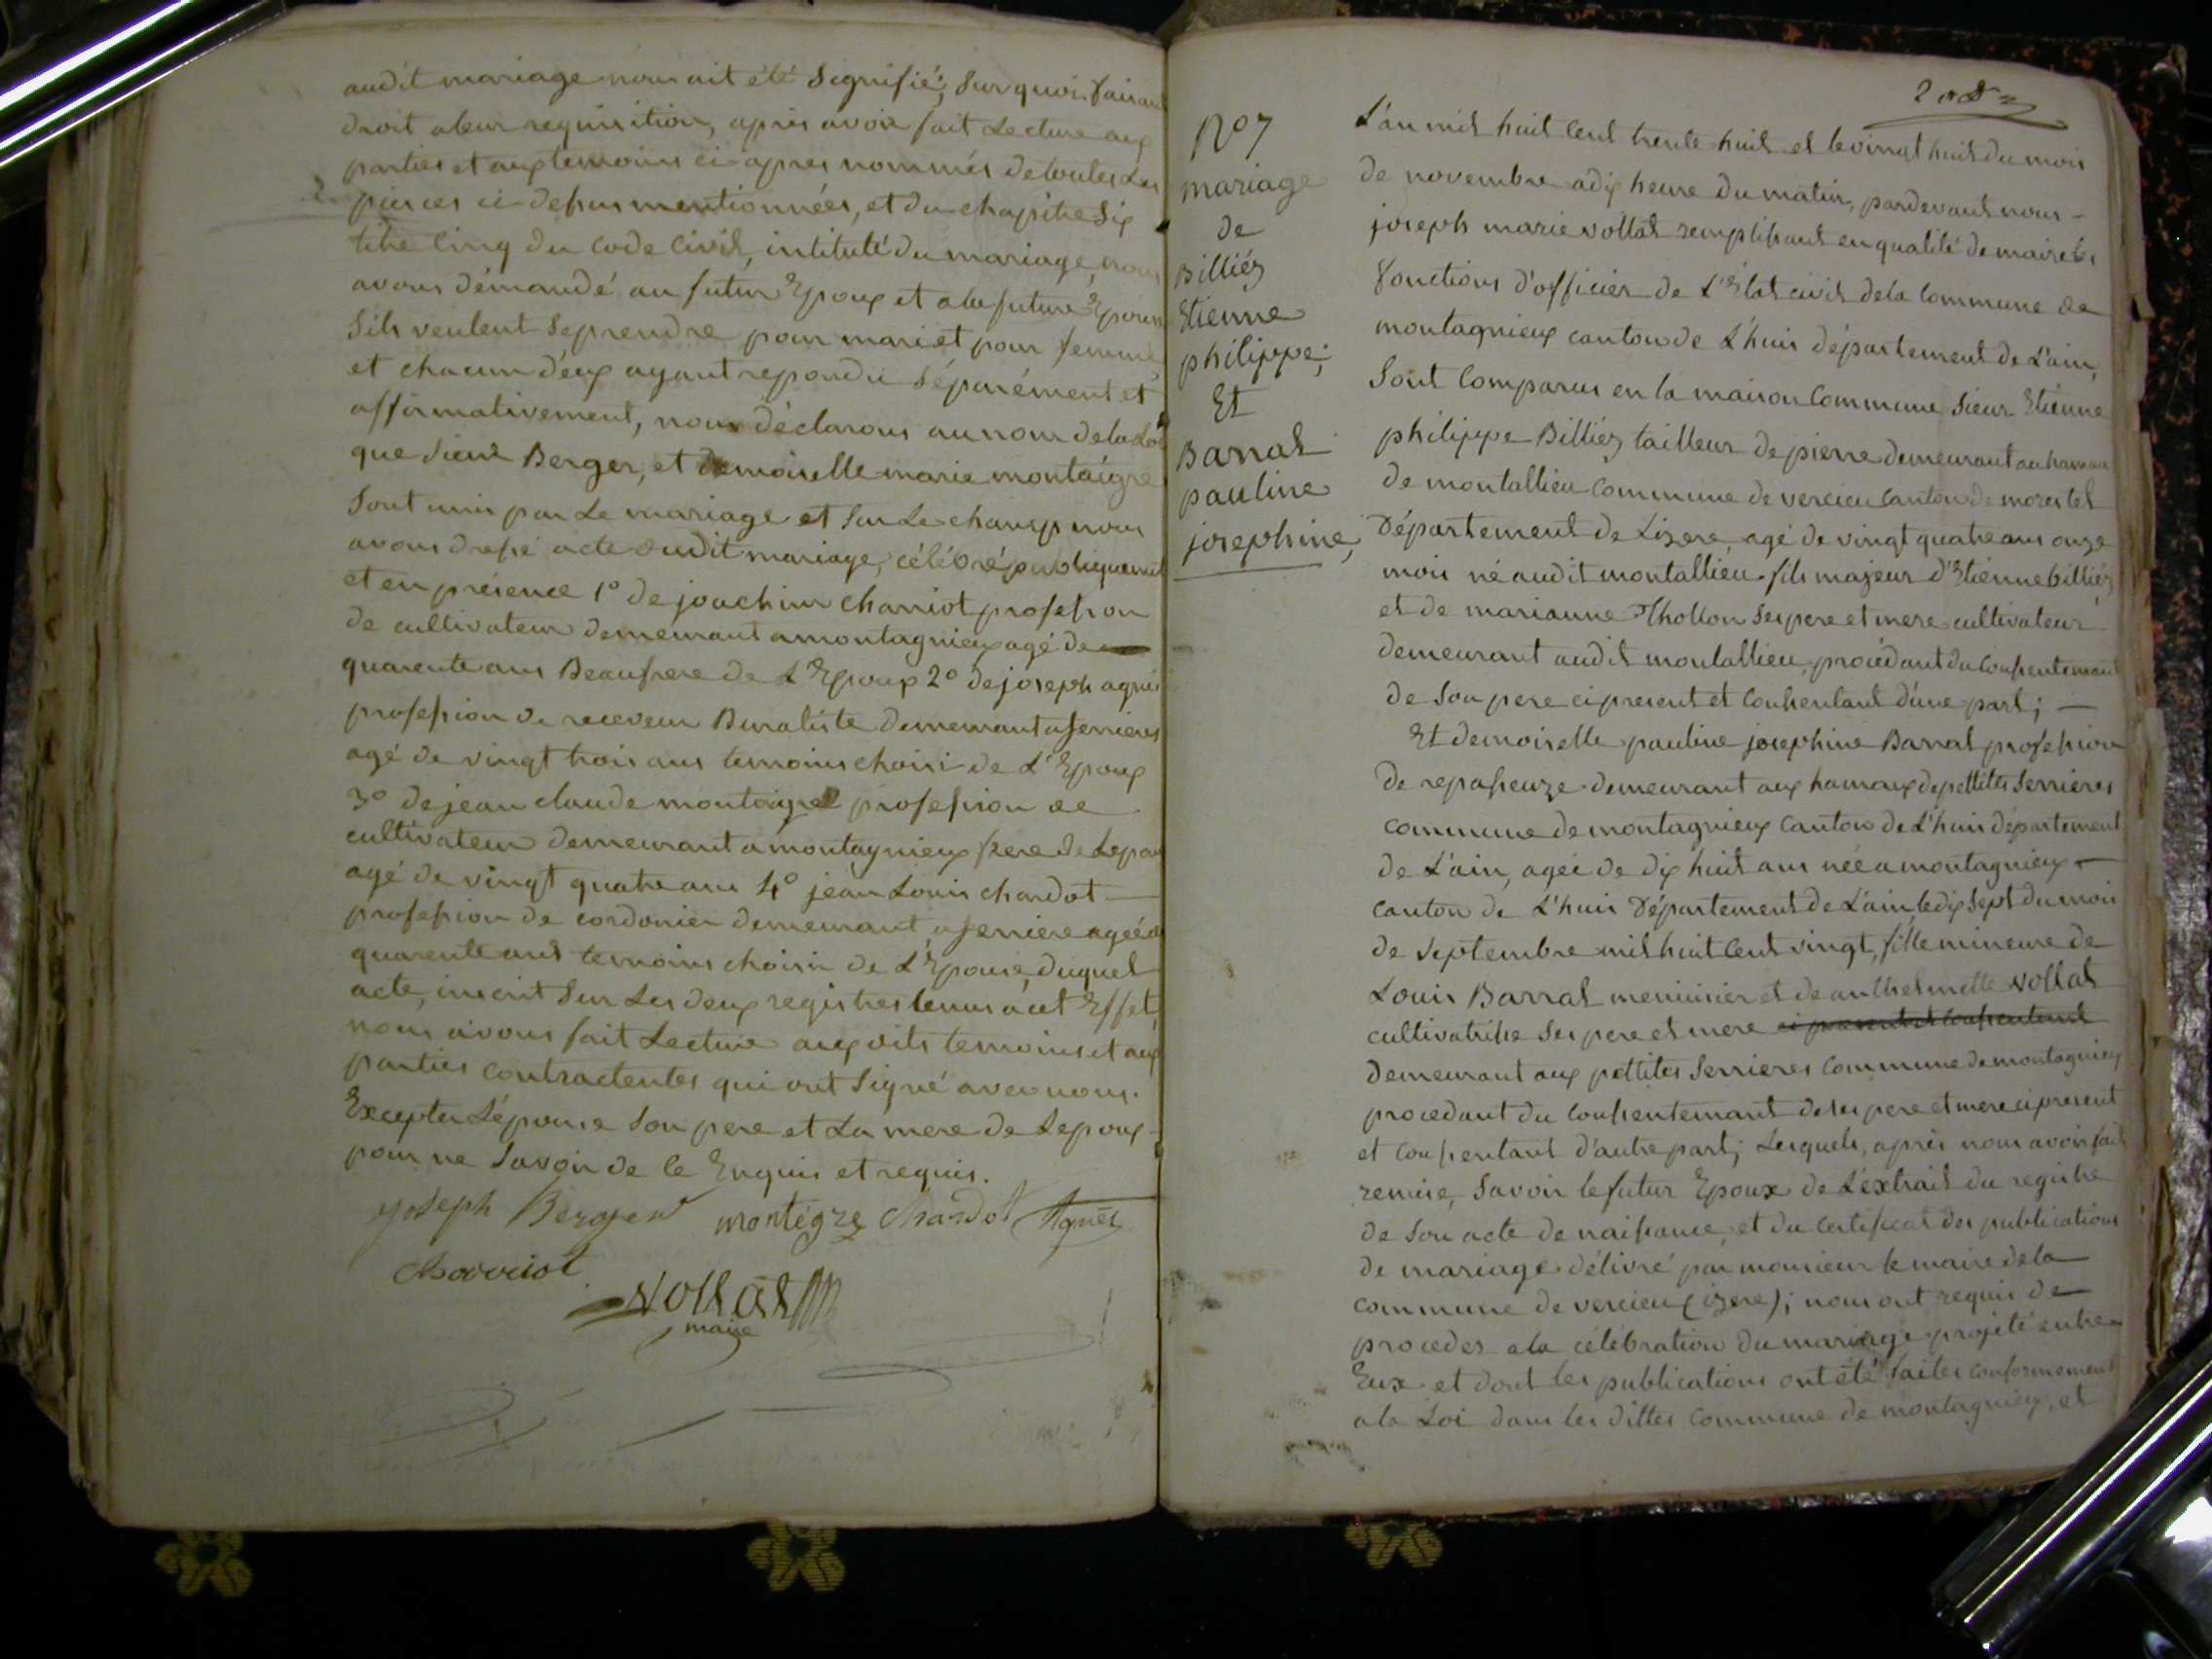 audit mariage nous ait été signifié; sur quoi faisant
droit a leur requisition, apres avoir fait Lecture aux
parties et aux temoins ci apres nommés de toutes Les
pieces ci dessus mentionnées, et du chapitre six
titre cinq du code civil, intitulé du mariage, nous
avons démandé au futur Epoux et a la future Epouse
s'ils veulent se prendre pour mari et pour femme,
et chacun d'eux ayant repondu séparément et
affirmativement, nous déclarons au nom de la Loi
que sieur Berger, et demoiselle marie montaigre
sont unis par Le mariage et sur Le champ nous
avons dressé acte dudit mariage, célébré publiquement
et en présence 1° de joachim charriot profession
de cultivateur demeurant a montagnieux agé de
quarente ans Beaufrere de L'Epoux 2° de joseph agnès
profession de receveur Buraliste demeurant a serrieres
agé de vingt trois ans temoins choisi de L'Epoux
3° de jean claude montaigre profession de
cultivateur demeurant a montagnieux frere de Lepouse
agé de vingt quatre ans 4° jean Louis chardot
profession de cordonier demeurant a serriere agée de
quarente ans temoins choisir de L'Epouse, duquel
acte, inscrit sur Les deux registres tenus a cet Effet,
nous avons fait Lecture aux dits temoins et aux
parties contractentes qui ont signé avec nous.
Excepter L'épouse son pere et La mere de Lepoux
pour ne savoir de le Enquis et requis.
joseph Berger montégre chardot Agnès
charriot
Vollat
maire
208
N° 7
mariage
de
Billiéz
Etienne
philippe;
Et
Barral
pauline
josephine,
L'an mil huit cent trente huit et le vingt huit du mois
de novembre a dix heure du matin, pardevant nous
joseph marie vollat remplissant en qualité de maire les
fonctions d'officier de L'Etat civil de la commune de
montagnieux canton de L'huis département de L'ain,
sont comparus en la maison commune sieur Etienne
philippe Billiez tailleur de pierre demeurant au hameau
de montallieu commune de vercieu canton de morestel
Département de Lizere, agé de vingt quatre ans onze
mois né audit montallieu fils majeur d'Etienne billiéz
et de marianne Thollon ses pere et mere cultivateur
demeurant audit montallieu, procédant du consentemant
de son pere ci present et consentant d'une part;
Et demoiselle pauline josephine Barral profession
de repasseuze demeurant aux hamaux de pettites serrieres
commune de montagnieux canton de L'huis département
de L'ain, agée de dix huit ans née a montagnieux
canton de L'huis Département de L'ain le dix sept du mois
de septembre mil huit cent vingt, fille mineure de
Louis Barral menuisier et de anthelmette vollat
cultivatrisse ses pere et mere ci present et consentant
demeurant aux pettites serrieres commune de montagnieux
procedant du consentemant de ses pere et mere ci present
et consentant d'autre part; Lesquels, après nous avoir fait
remise, savoir le futur Epoux de L'extrait du registre
de son acte de naissance, et du certificat des publications
de mariage délivré par monsieur le maire de la
commune de vercieu (izere); nous ont requis de
proceder a la célébration du mariage projeté entre
Eux et dont les publications ont été faites conformement
a la Loi dans les dittes commune de montagnieux, et